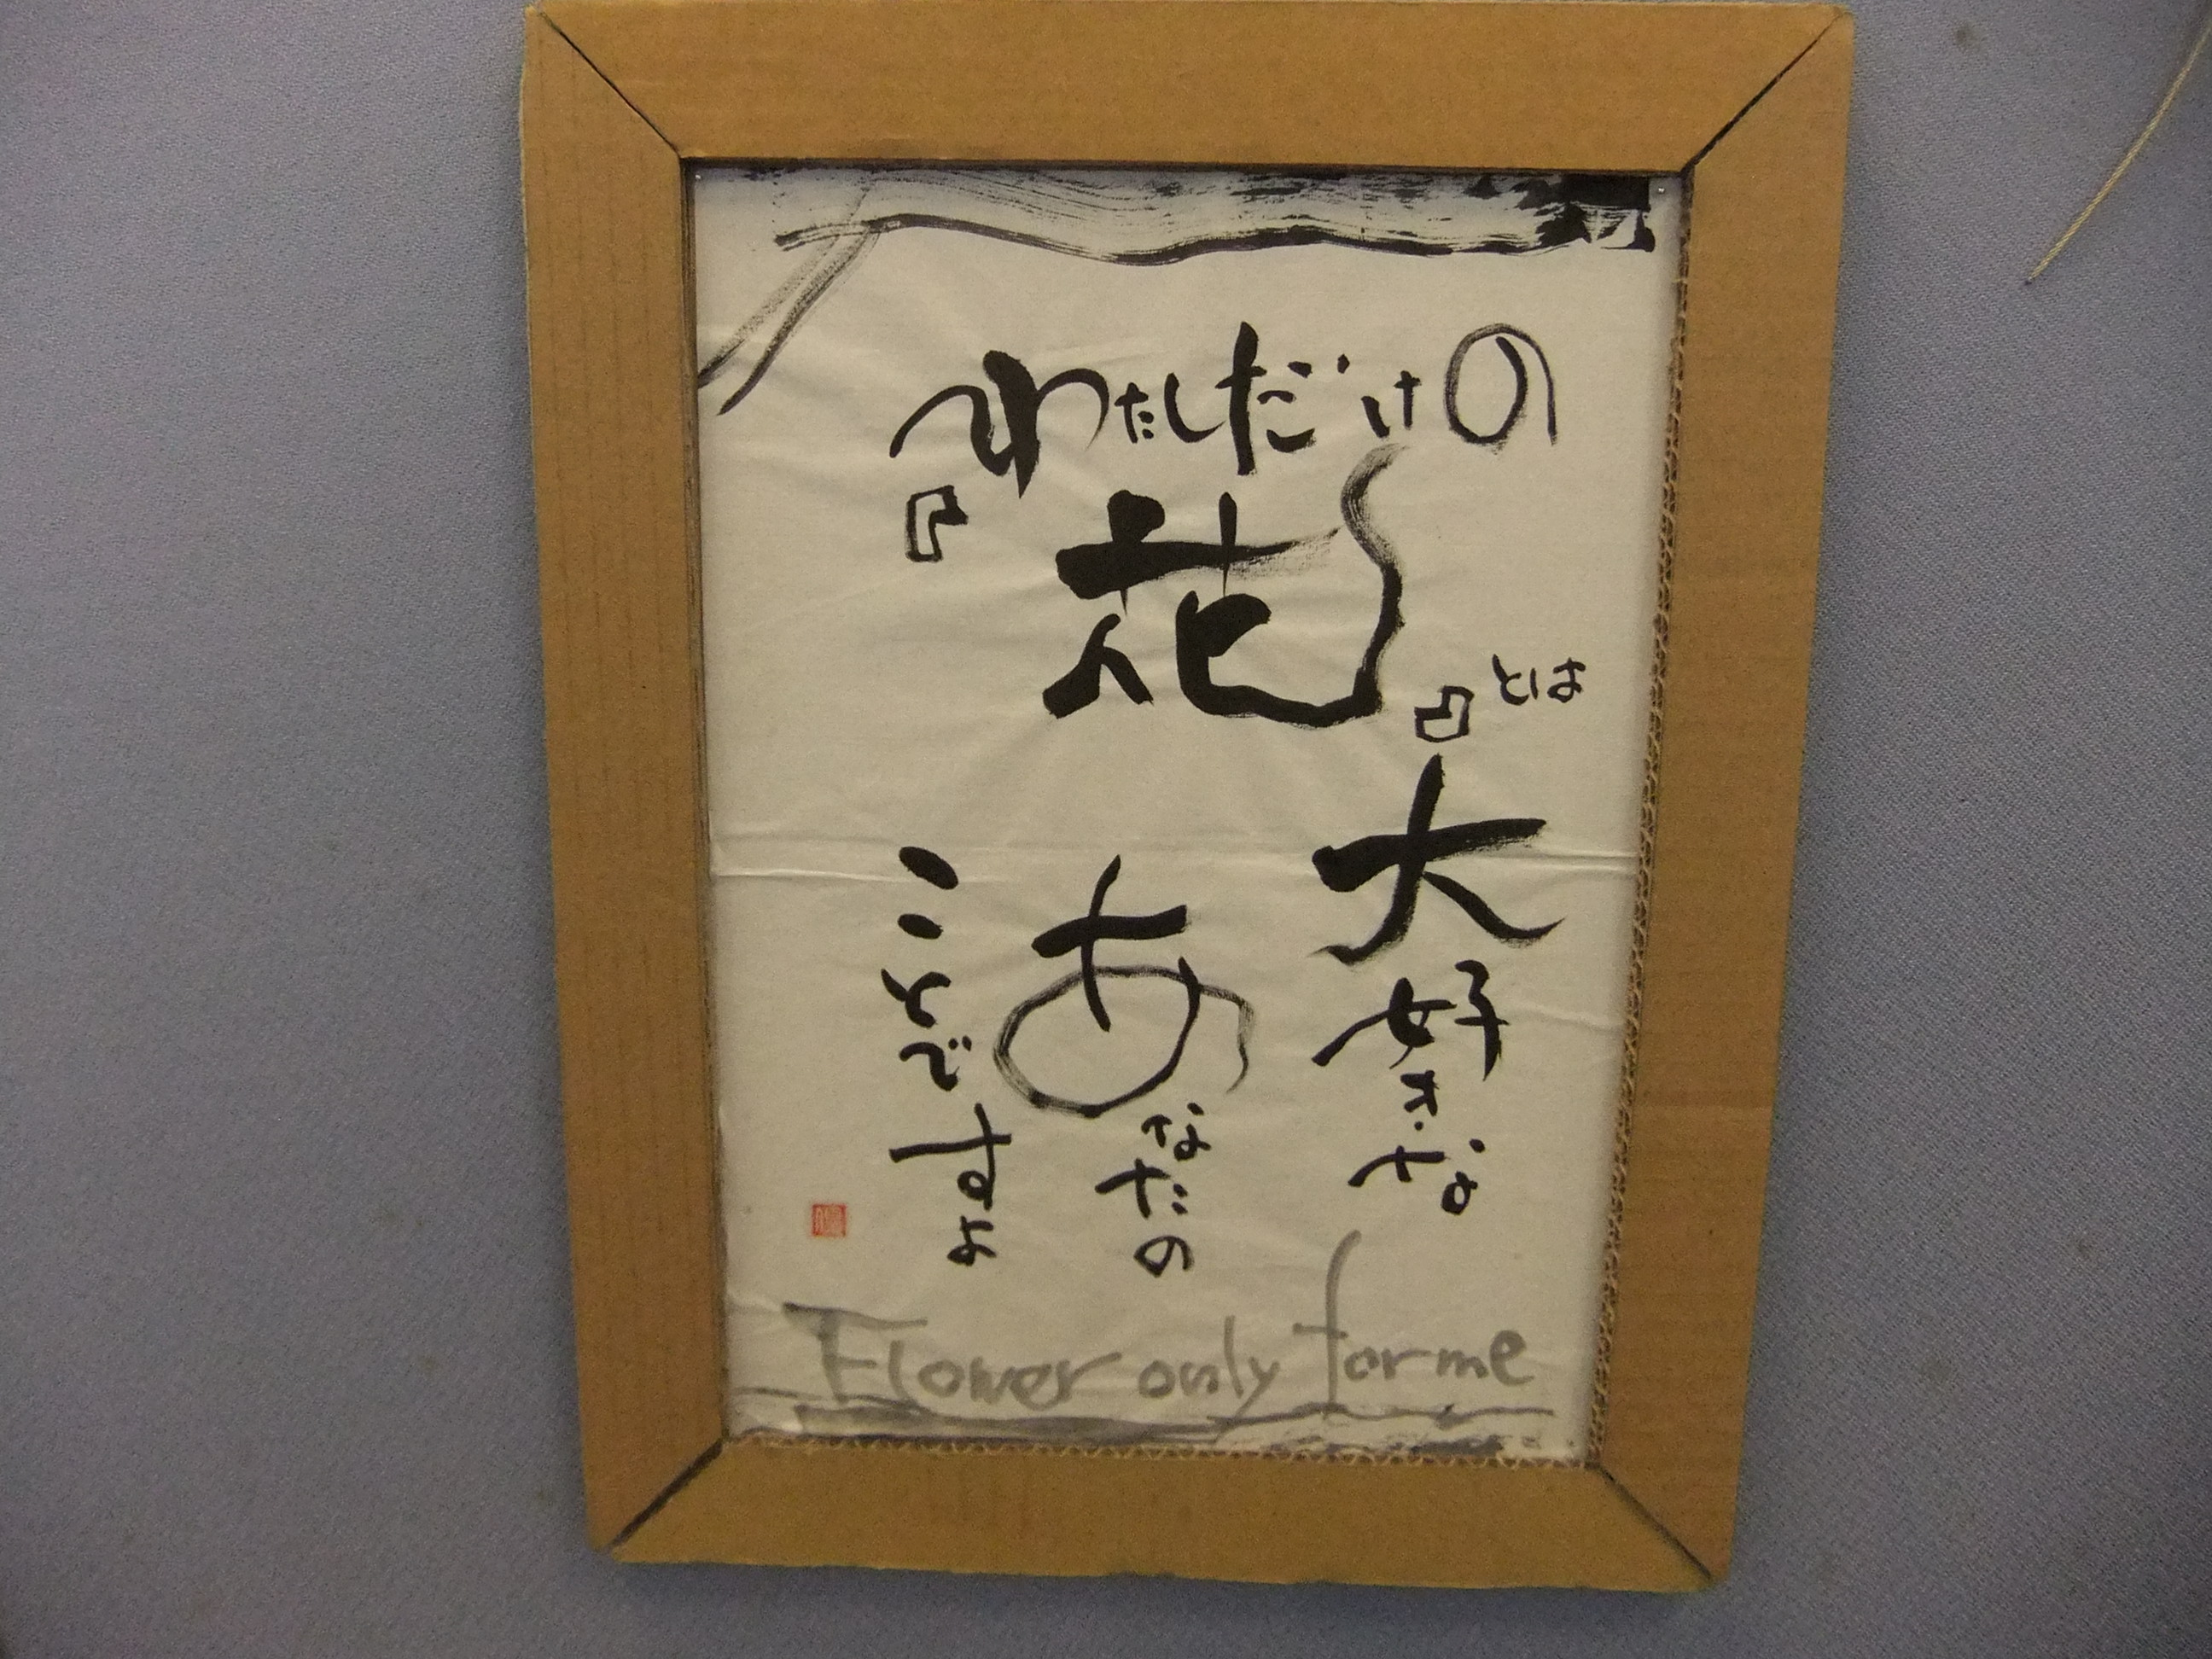 わたしだけの
『花』とは
大好きな
あなたの
ことですよ
Flower only for me